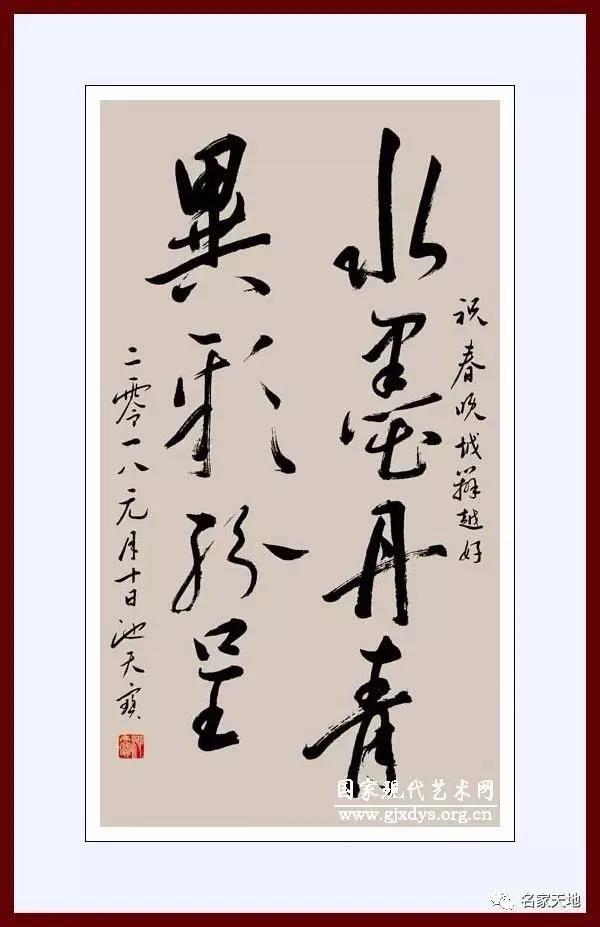 祝春晚越辦越好
水墨丹青
異彩紛呈
二零一八元月十日池天寶
国家现代艺术网
www.gjxdys.org.cn
名家天地